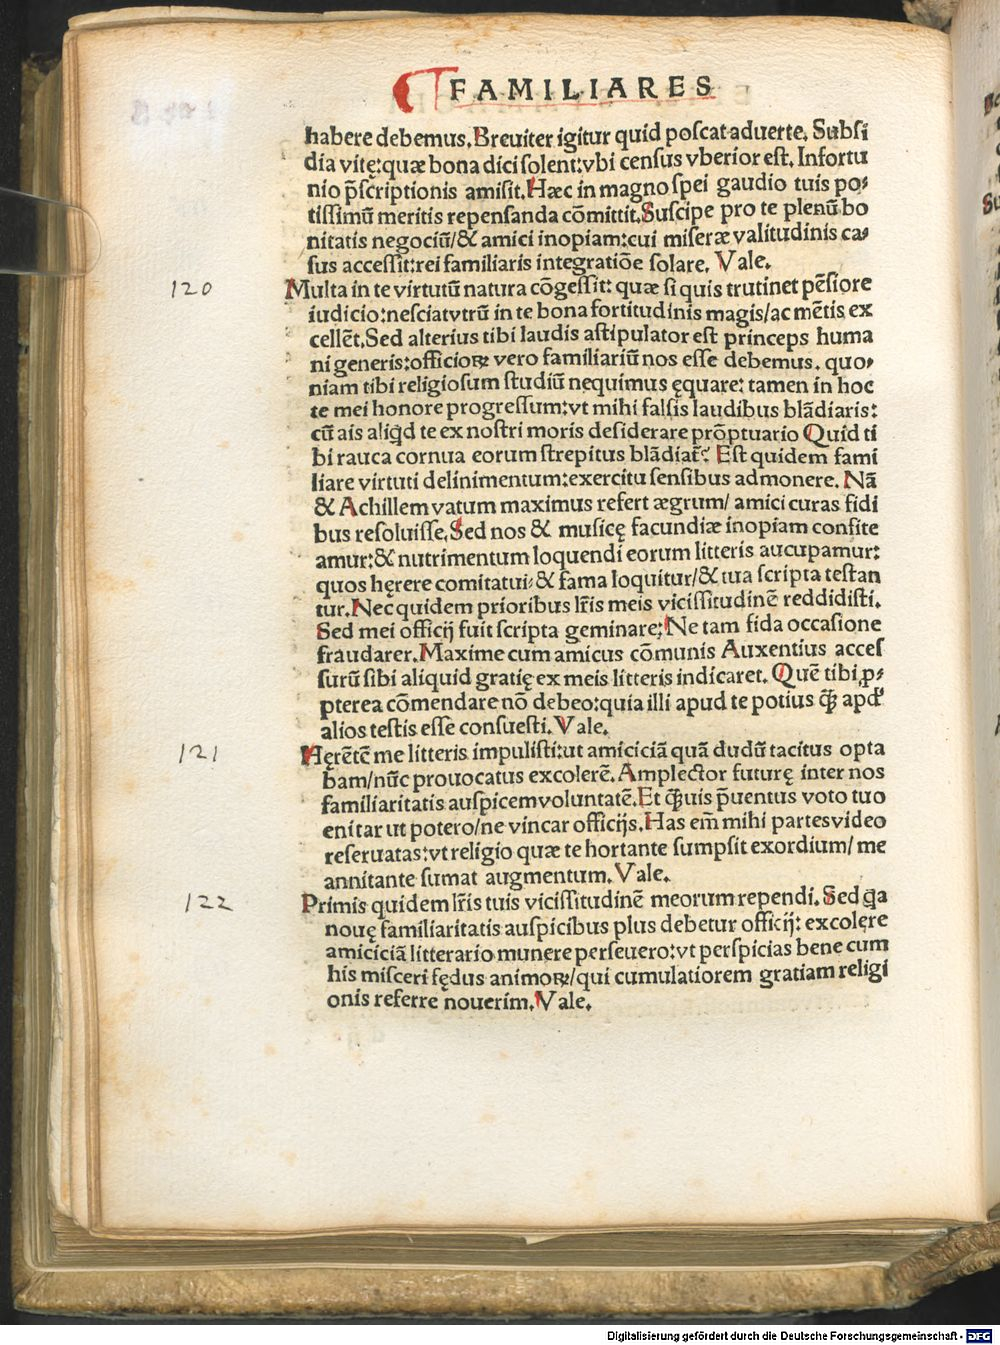 FAMILIARES
habere debemus. Breuiter igitur quid poscat aduerte. Subsi
dia vitę: quæ bona dici solent: vbi census vberior est. Infortu
nio p̄scriptionis amisit. Hæc in magno spei gaudio tuis po-
tissimū meritis repensanda cōmittit. Suscipe pro te plenū bo
nitatis negociū/& amici inopiam: cui miseræ valitudinis ca-
sus accessit: rei familiaris integratiōe solare. Vale.
120
Multa in te virtutū natura cōgessit: quæ si quis trutinet pēsiore
iudicio: nesciat vtrū in te bona fortitudinis magis/ac mētis ex
cellēt. Sed alterius tibi laudis astipulator est princeps huma
ni generis: officioꝝ vero familiariū nos esse debemus. quo-
niam tibi religiosum studiū nequimus ęquare: tamen in hoc
te mei honore progressum: vt mihi falsis laudibus blādiaris:
cū ais aliqd te ex nostri moris desiderare prōptuario Quid ti
bi rauca cornua eorum strepitus blādiat̄? Est quidem fami
liare virtuti delinimentum: exercitu sensibus admonere. Nā
& Achillem vatum maximus refert ægrum/ amici curas fidi
bus resoluisse. Sed nos & musicę facundiæ inopiam confite
amur: & nutrimentum loquendi eorum litteris aucupamur:
quos hęrere comitatui: & fama loquitur/& tua scripta testan
tur. Nec quidem prioribus lr̄is meis vicissitudinē reddidisti.
Sed mei officij fuit scripta geminare: Ne tam fida occasione
fraudarer. Maxime cum amicus cōmunis Auxentius acces
surū sibi aliquid gratię ex meis litteris indicaret. Quē tibi ꝓ-
pterea cōmendare nō debeo: quia illi apud te potius ꝙ̄ apd'
alios testis esse consuesti. Vale.
121
Hęrētē me litteris impulisti: ut amiciciā quā dudū tacitus opta
bam/nūc prouocatus excolerē. Amplector futurę inter nos
familiaritatis auspicem voluntatē. Et ꝙ̄uis p̄uentus voto tuo
enitar ut potero/ne vincar officijs. Has em̄ mihi partes video
reseruatas: vt religio quæ te hortante sumpsit exordium/ me
annitante sumat augmentum. Vale.
122
Primis quidem lr̄is tuis vicissitudinē meorum rependi. Sed q̄a
nouę familiaritatis auspicibus plus debetur officij: excolęre
amiciciā litterario munere perseuero: vt perspicias bene cum
his misceri fędus animoꝝ/qui cumulatiorem gratiam religi
onis referre nouerim. Vale.
Digitalisierung gefördert durch die Deutsche Forschungsgemeinschaft - DFG